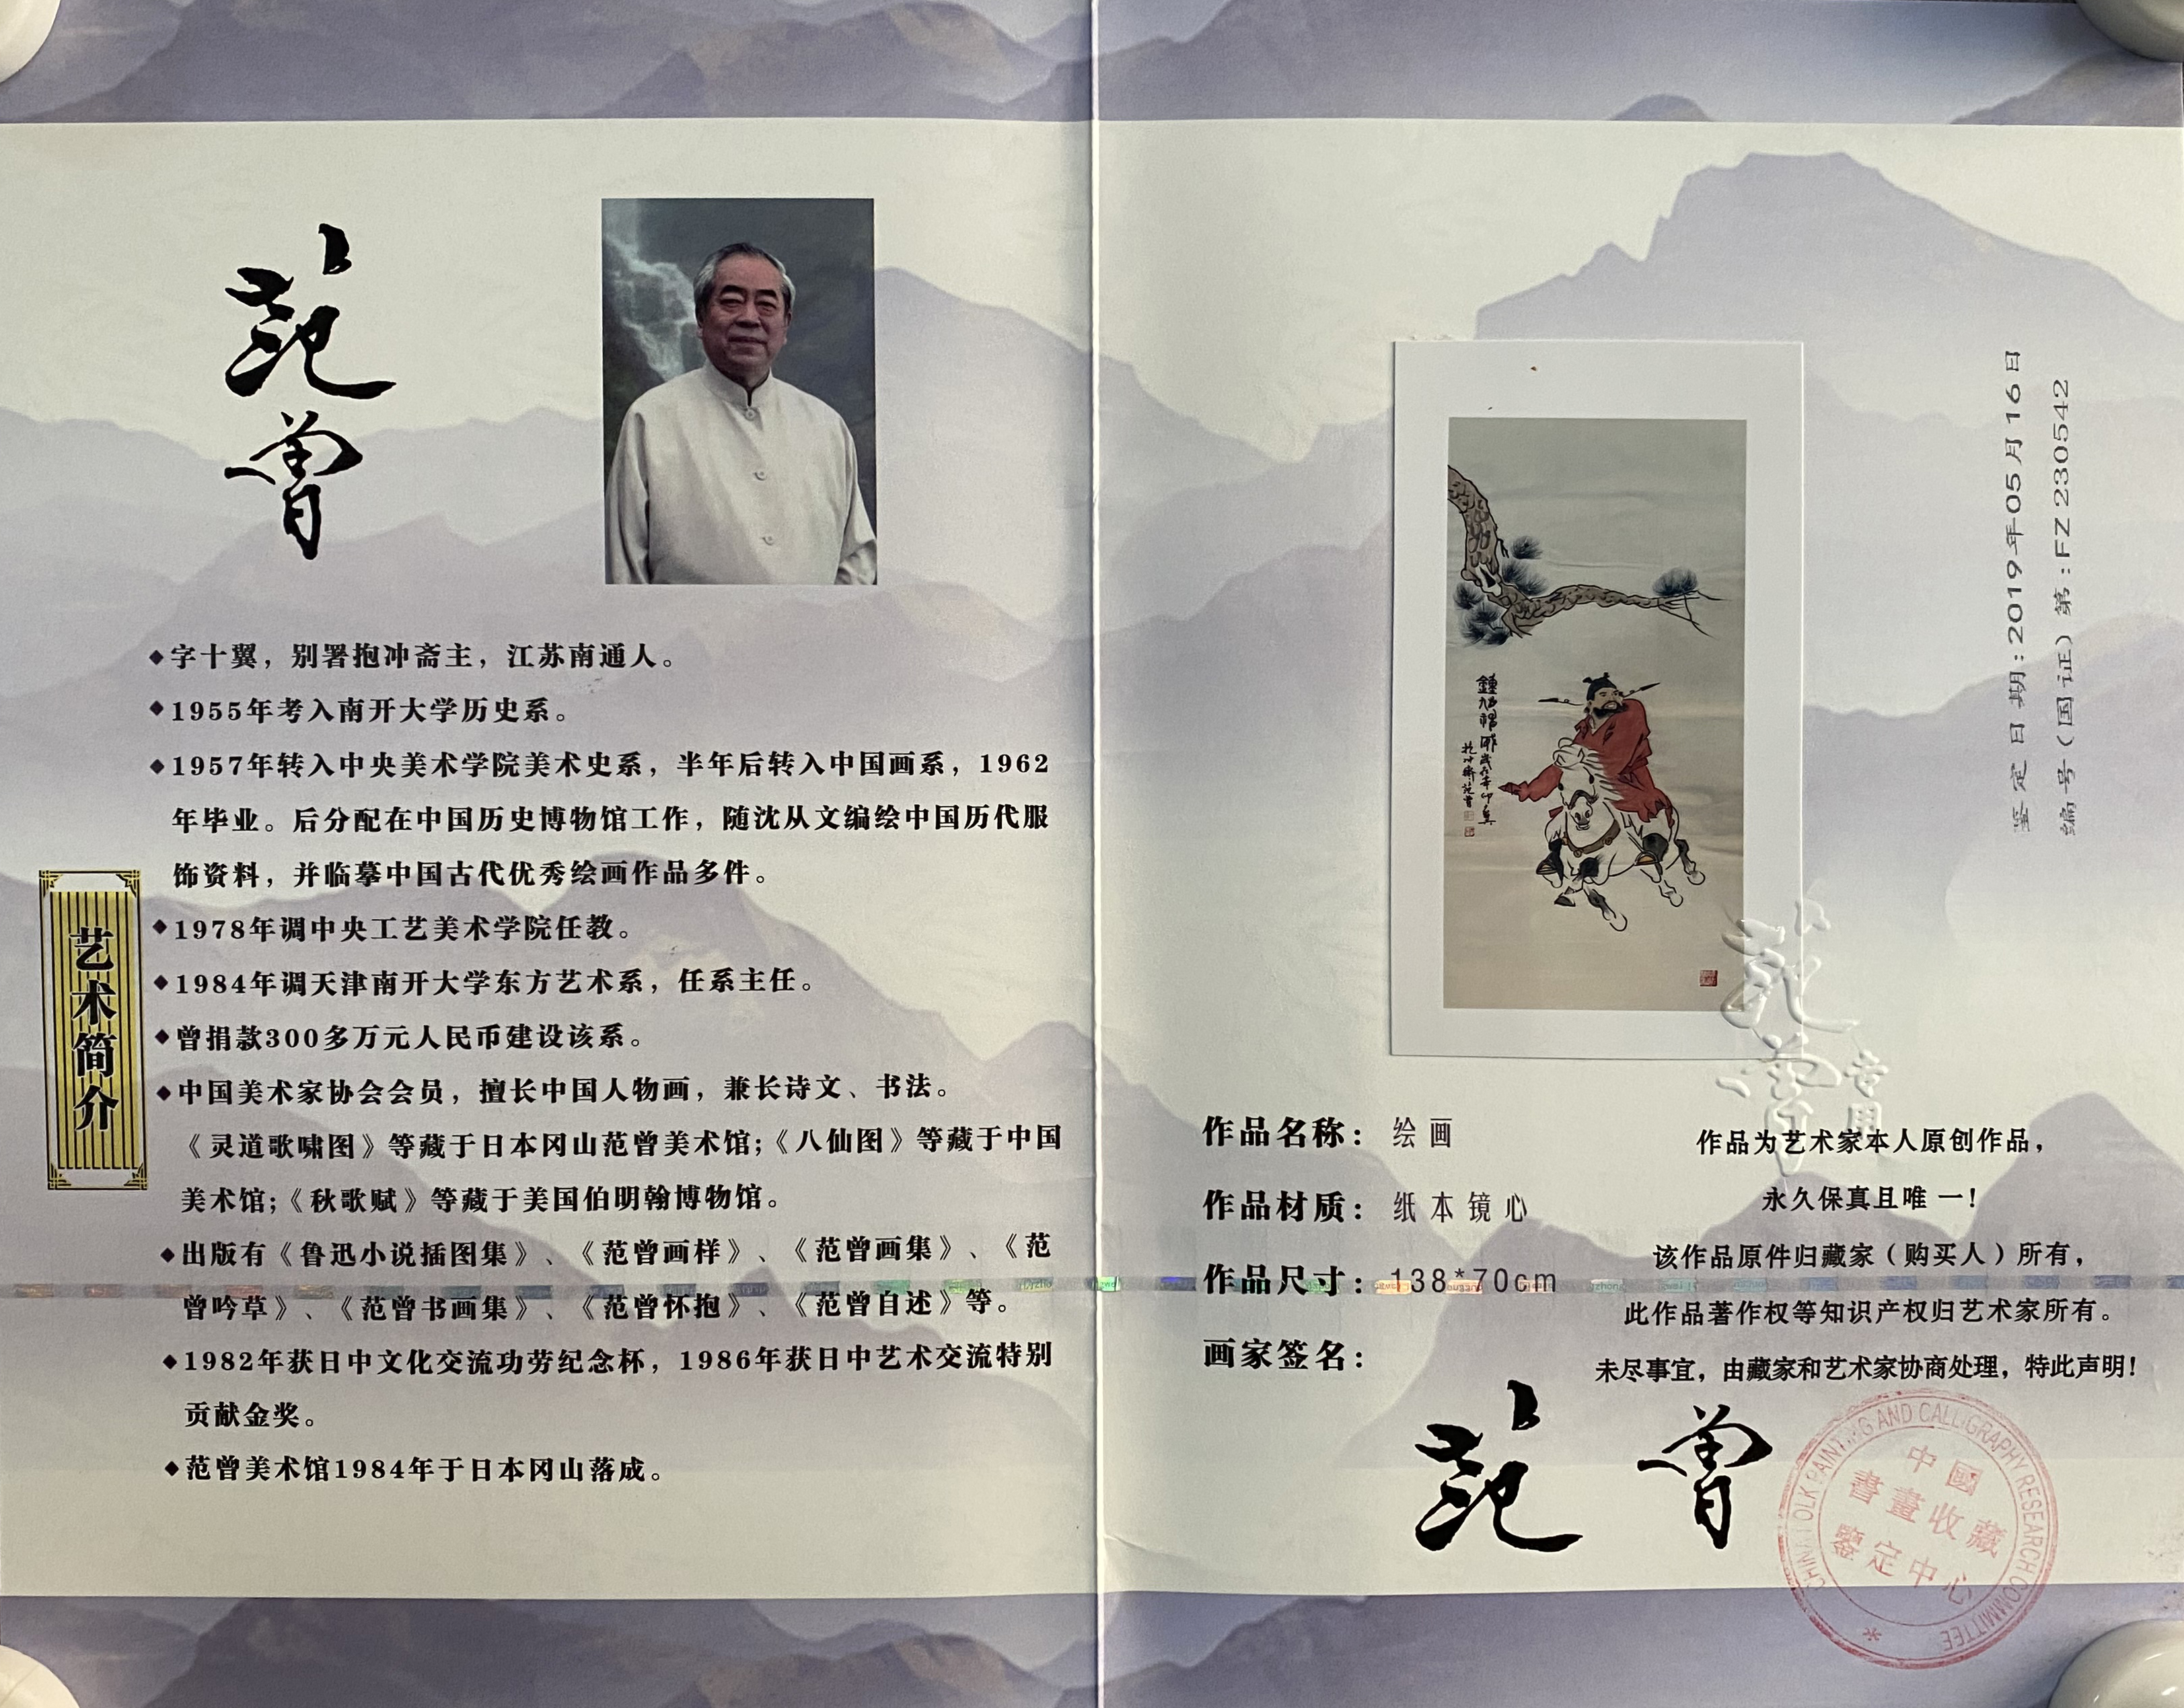 范
曾
艺术简介
◆字十翼，别署抱冲斋主，江苏南通人。
◆1955年考入南开大学历史系。
◆1957年转入中央美术学院美术史系，半年后转入中国画系，1962
年毕业。后分配在中国历史博物馆工作，随沈从文编绘中国历代服
饰资料，并临摹中国古代优秀绘画作品多件。
◆1978年调中央工艺美术学院任教。
◆1984年调天津南开大学东方艺术系，任系主任。
◆曾捐款300多万元人民币建设该系。
◆中国美术家协会会员，擅长中国人物画，兼长诗文、书法。
《灵道歌啸图》等藏于日本冈山范曾美术馆;《八仙图》等藏于中国
美术馆;《秋歌赋》等藏于美国伯明翰博物馆。
◆出版有《鲁迅小说插图集》、《范曾画样》、《范曾画集》、《范
曾吟草》、《范曾书画集》、《范曾怀抱》、《范曾自述》等。
◆1982年获日中文化交流功劳纪念杯，1986年获日中艺术交流特别
贡献金奖。
◆范曾美术馆1984年于日本冈山落成。
鉴定日期:2019年05月16日
编号(国证)第:FZ230542
范曾
专用
作品名称：绘画
作品材质：纸本镜心
作品尺寸：138*70cm
画家签名：
范 曾
作品为艺术家本人原创作品，
永久保真且唯一！
该作品原件归藏家（购买人）所有，
此作品著作权等知识产权归艺术家所有。
未尽事宜，由藏家和艺术家协商处理，特此声明！
CHINA FOLK PAINTING AND CALLIGRAPHY RESEARCH COMMITTEE
中國
書畫收藏
鑒定中心